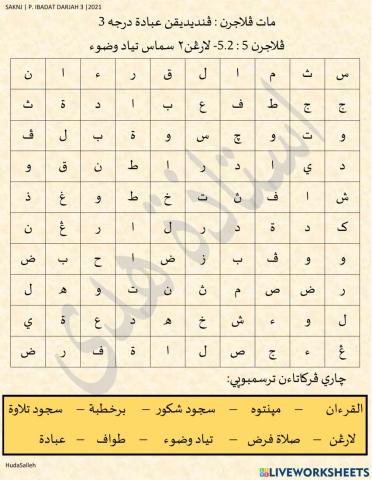 SAKNJ | P. IBADAT DARJAH 3 |2021
مات ڤلاجرن : ڤنديديقن عبادة درجه 3
ڤلاجرن 5 : 5.2- لارڠن٢ سماس تياد وضوء
س ث م ا ل ق ر ء ا ن
ج ج ط ف ع ب ا د ة ث
و ت و چ س و ة ب ل ڤ
د ي ا د ر ا ط ن ق و
ش ا ف ث ت خ ط و غ ذ
ک د ة د ر ل ا ر ڠ ن
و و ڤ ب ز ض ا ح ب ض
ر ض ص م ث ن ت و ه ل
ل و ء ش خ ه د ع ة ي
ڠ ء ج ص ل ا ة ف ر ض
استاذة هدى
چاري ڤركاتاءن ترسمبوڽي:
القرءان – مڽنتوه – سجود شكور – برخطبة – سجود تلاوة
لارڠن – صلاة فرض – تياد وضوء – طواف – عبادة
HudaSalleh
LIVEWORKSHEETS